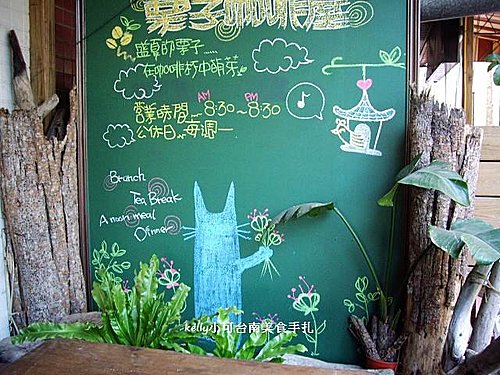 栗子咖啡屋
盛夏的栗子......
在咖啡的中萌芽...
AM PM
營業時間 — 8:30~8:30
公休日~每週一
Brunch
Tea Break
A noon meal
Dinner
kelly小可台南美食手札